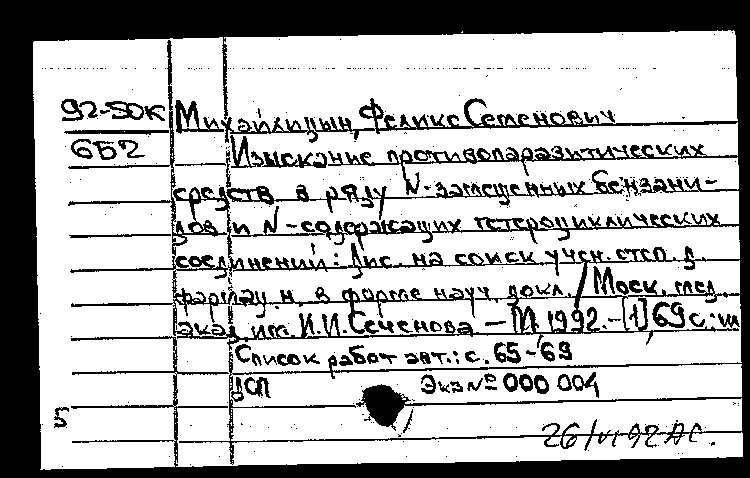 92-50к Михайлицын, Феликс Семенович
6Б2 Изыскание противопаразитических
средств в ряду N-замещенных бензани-
лидов и N-содержащих гетероциклических
соединений: Дис. на соиск. учен. степ. д.
фармац. н. в форме науч. докл. / Моск. мед.
акад. им. И.И. Сеченова — М., 1992. - [1], 69 с.: ил
Список работ авт.: с. 65-69
ДСП Экз № 000 004
26/VI 92 АС.